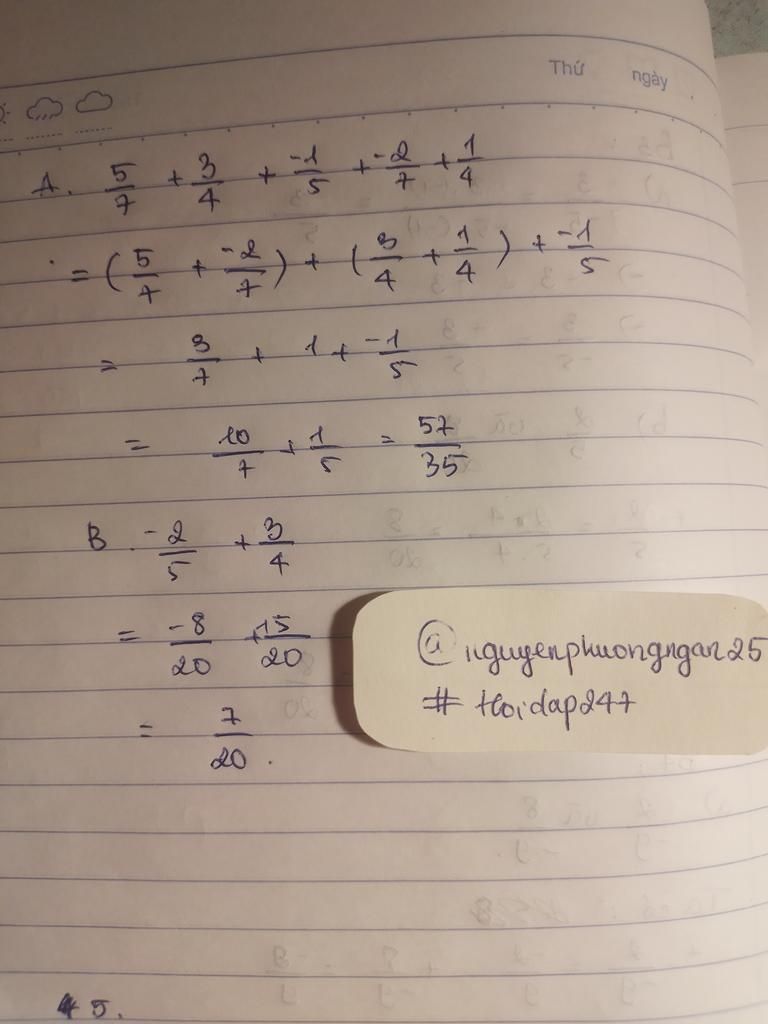 Thứ ngày
A. 5/7 + 3/4 + -1/5 + -2/7 + 1/4
= (5/7 + -2/7) + (3/4 + 1/4) + -1/5
= 3/7 + 1 + -1/5
= 10/7 + 1/5 = 57/35
B. -2/5 + 3/4
= -8/20 + 15/20
= 7/20.
@nguyenphuongngan25
# Hoidap247
5.